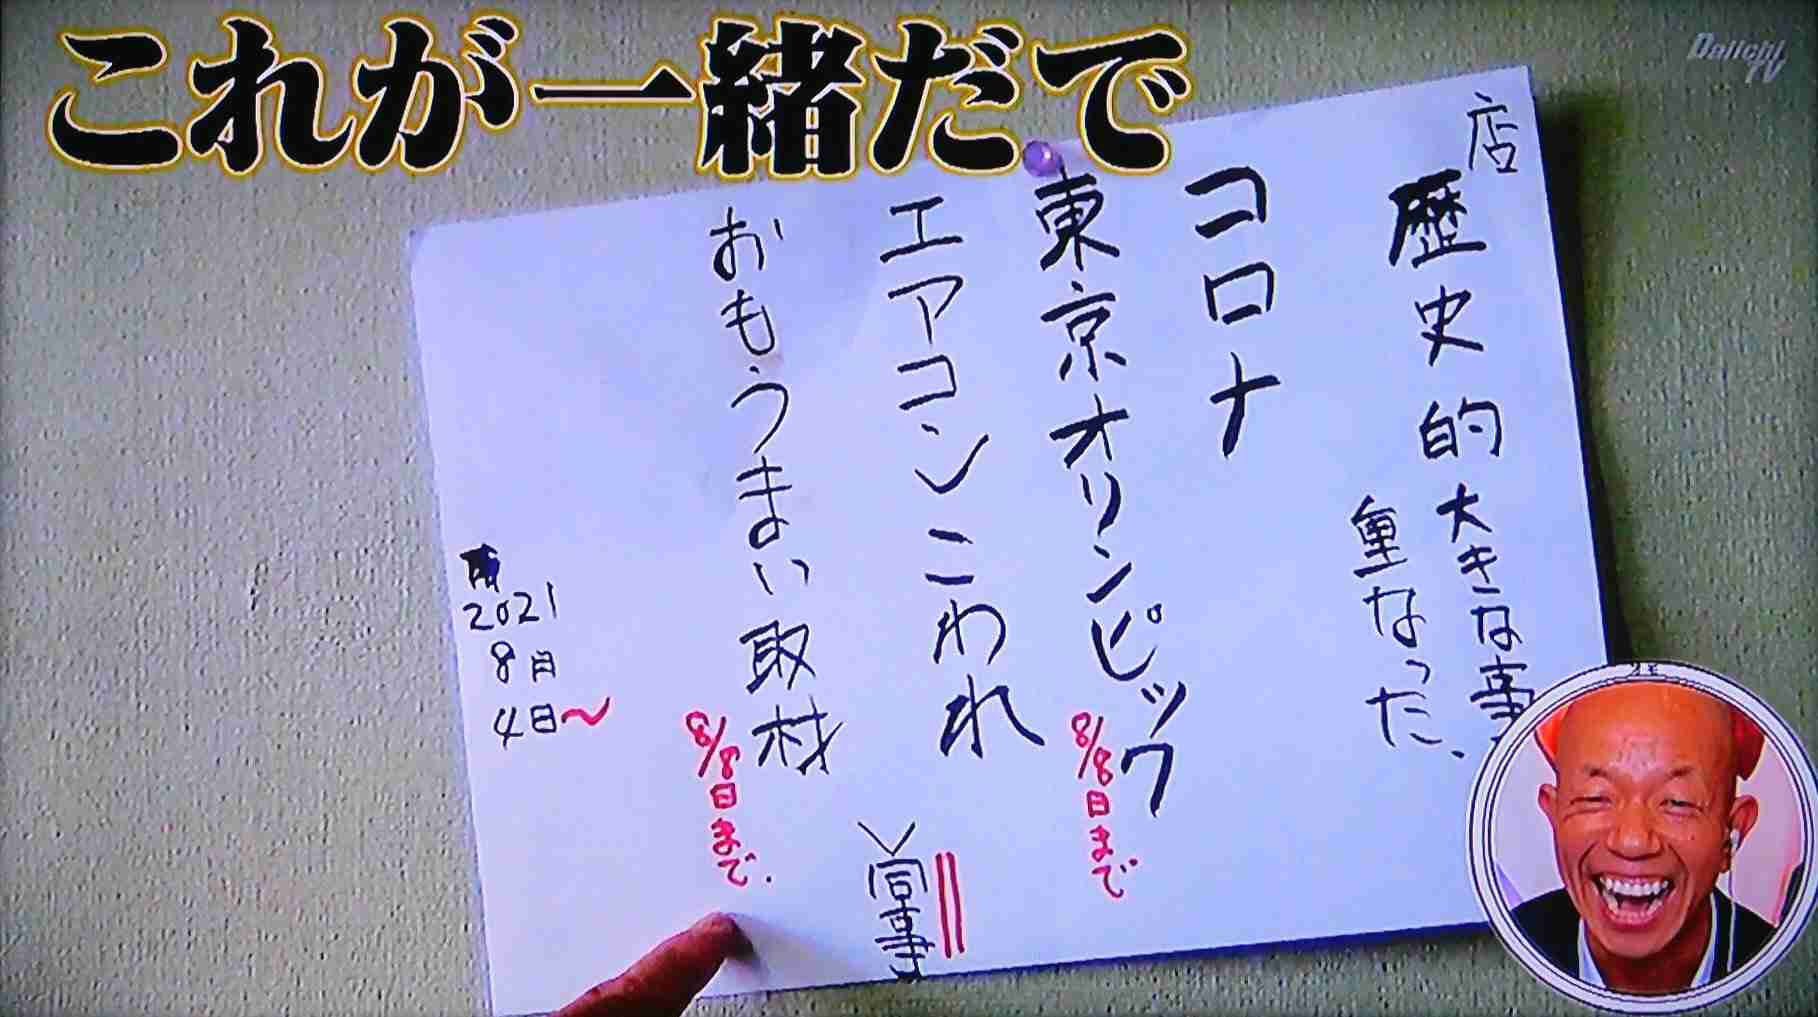 これが一緒だで
Daiichi TV
店
歴史的大きな事
重なった、
コロナ
東京オリンピック
8/8日まで
エアコンこわれ
同事
おもうまい取材
8/8日まで.
2021
8月
4日〜